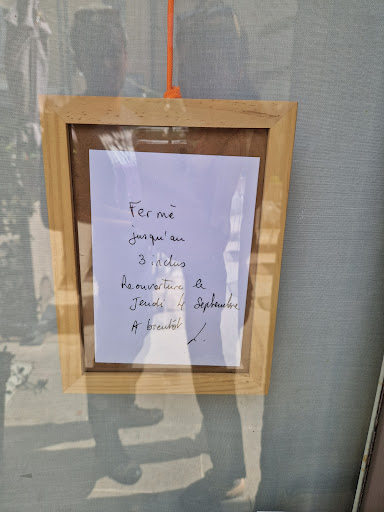 Fermé
jusqu'au
3 inclus
Réouverture le
Jeudi 4 Septembre.
A bientôt